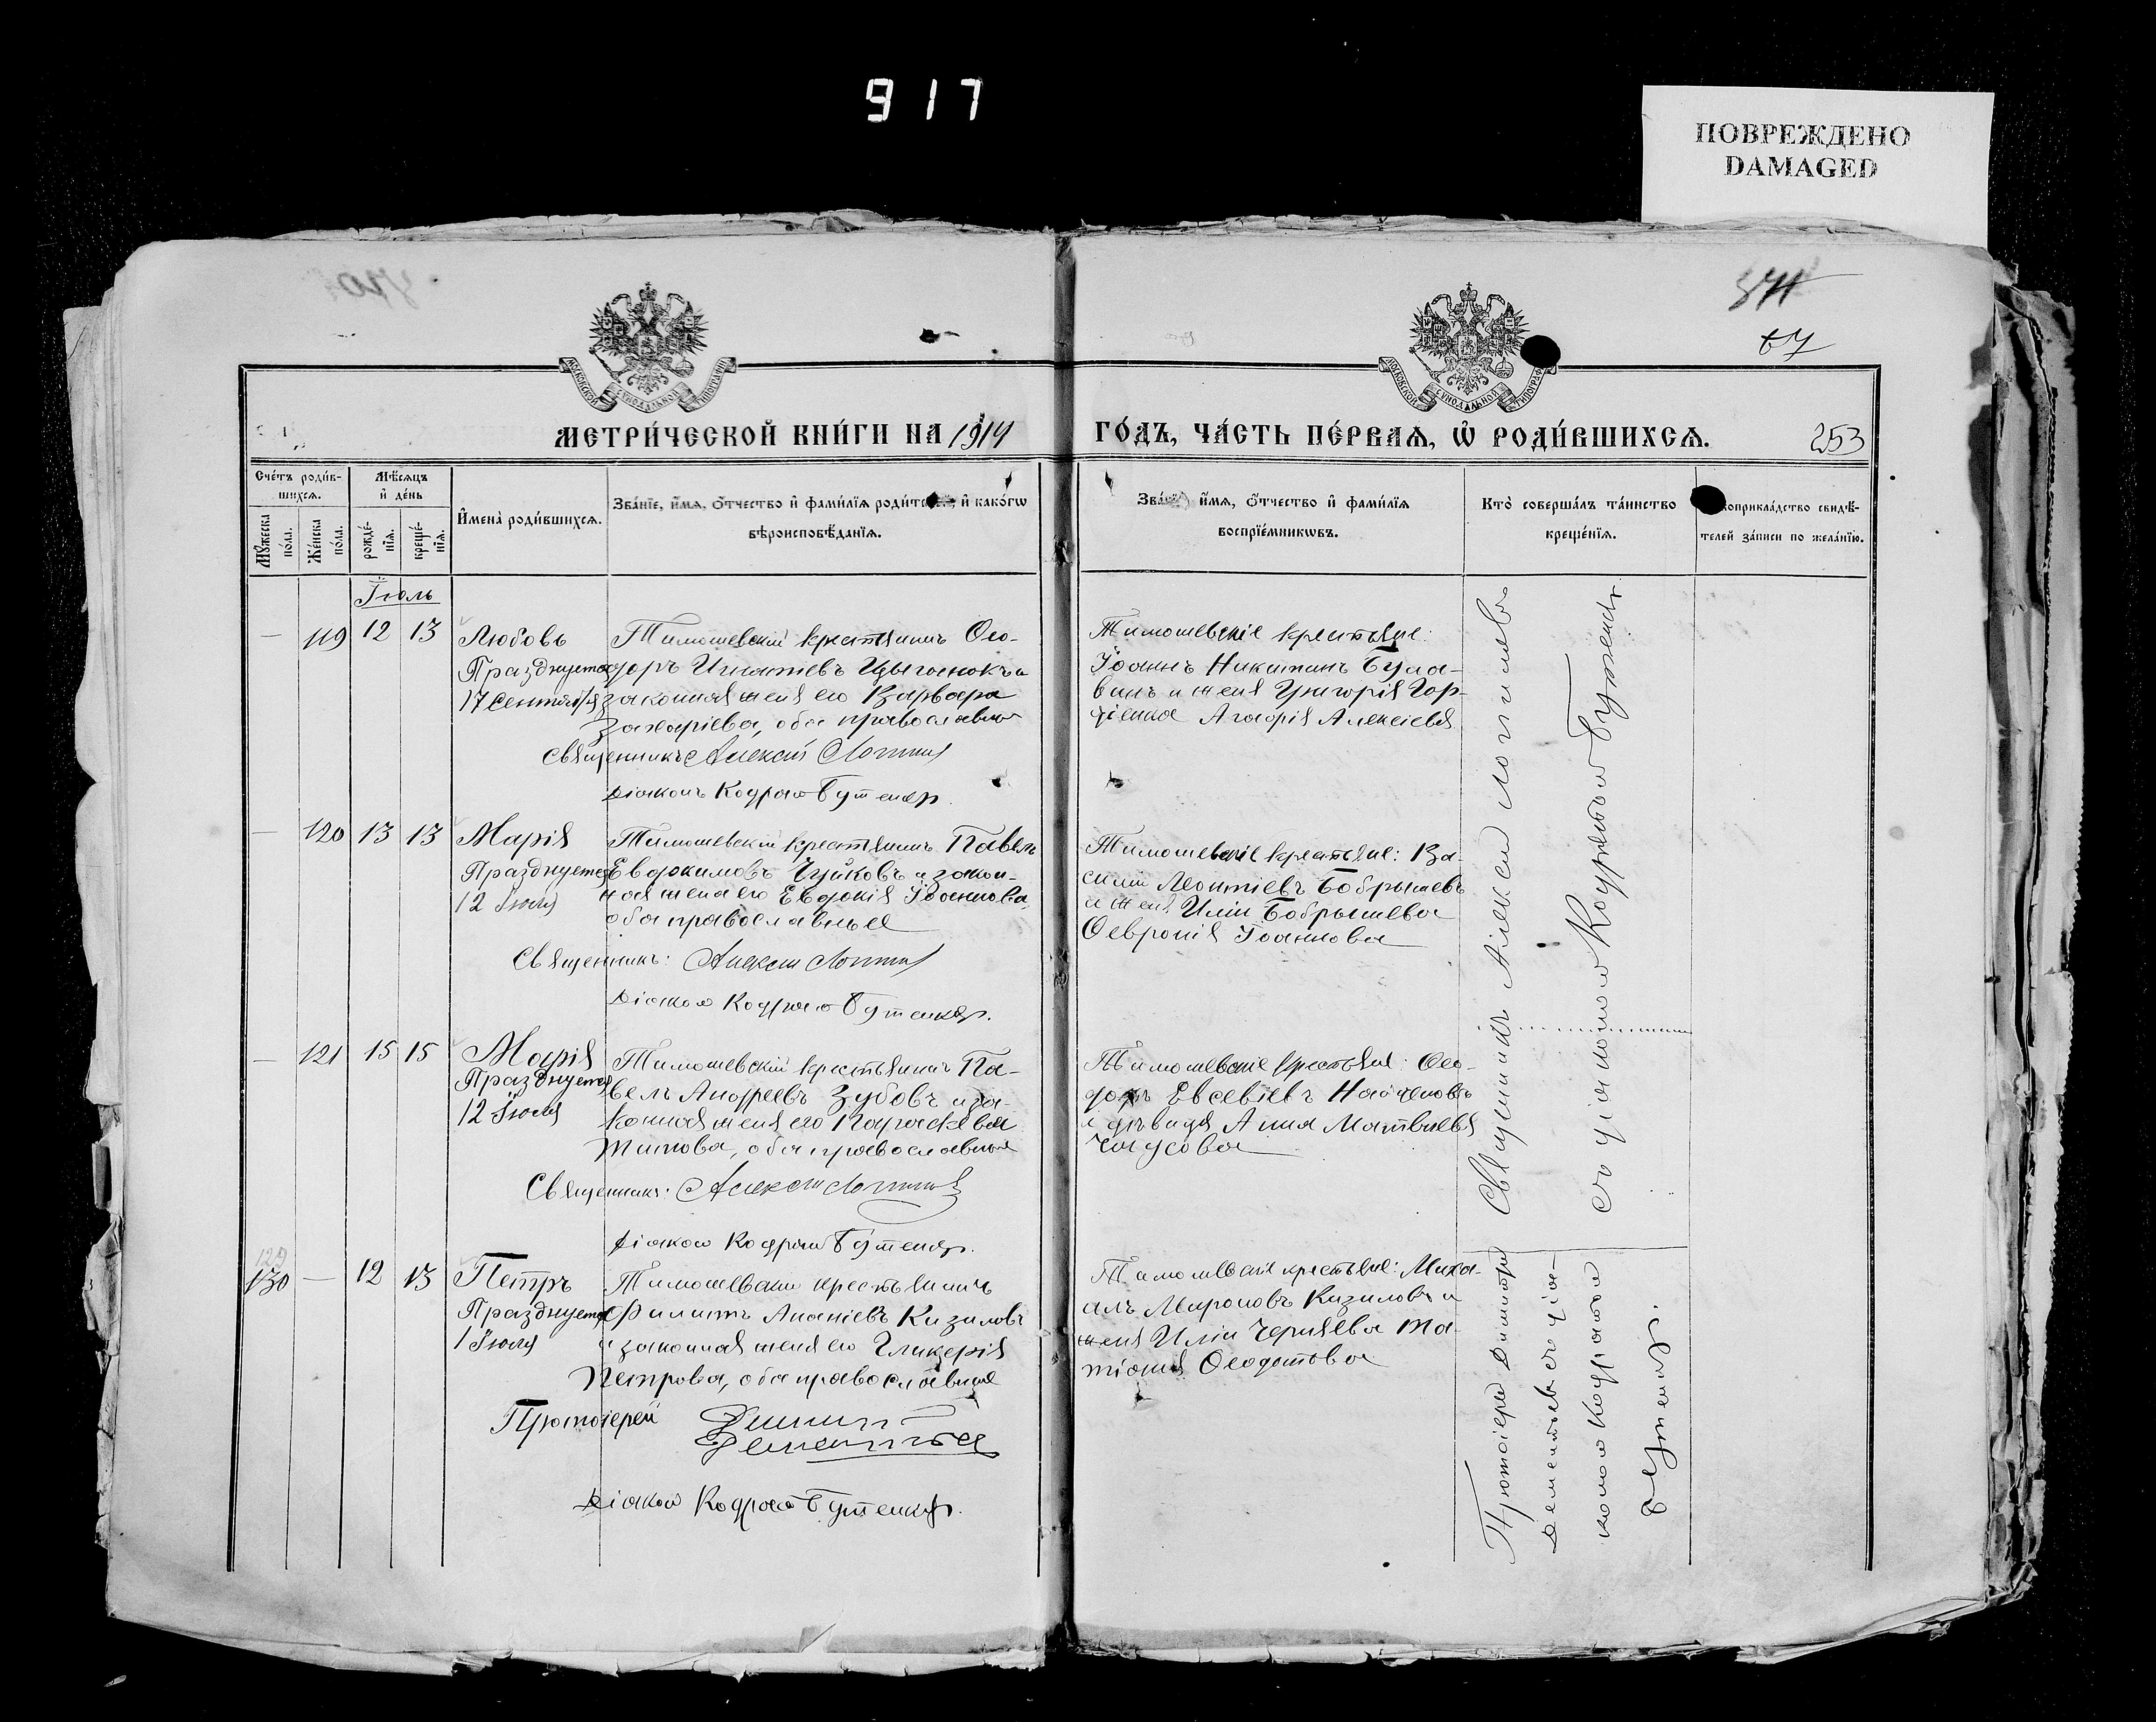 917
ПОВРЕЖДЕНО
DAMAGED
МОСКОВСКОЙ СУНОДАЛЬНОЙ ТИПОГРАФІИ
МОСКОВСКОЙ СУНОДАЛЬНОЙ ТИПОГРАФІИ
67
МЕТРИ́ЧЕСКОЙ КНИ́ГИ НА 1914 ГО́ДЪ, ЧА́СТЬ ПЕ́РВАѦ, Ѡ РОДИ́ВШИХСѦ.
253
Сче́тъ роди́в-
шихсѧ.
Мѣ́сѧцъ
и҆ де́нь
Мꙋ́жеска
по́ла.
Же́нска
по́ла.
рожде́-
нїѧ.
креще́-
нїѧ.
И҆мена̀ роди́вшихсѧ.
Зва́нїе, и҆́мѧ, ѻ҆́тчество и҆ фами́лїѧ роди́т и҆ како́гѡ
вѣроисповѣ́данїѧ.
Зва и҆́мѧ, ѻ҆́тчество и҆ фами́лїѧ
воспрїе́мникѡвъ.
Кто̀ соверша́лъ та́инство
креще́нїѧ.
коприкла́дство свидѣ́-
телей за́писи по жела́нїю.
Іюль
— 119 12 13 Любовь
Празднуется
17 Сентября
Тимошевскій крестьянинъ Ѳео-
доръ Игнатіевъ Цыганокъ и
законная жена его Варвара
Захаріева, оба православные
Священникъ Алексій Логиновъ
Діаконъ Кодратъ Бутенко.
Тимошевскіе крестьяне:
Іоаннъ Никитинъ Була-
винъ и жена Григорія Гор-
діенка Агафія Алексіева
— 120 13 13 Марія
Празднуется
12 Іюля
Тимошевскій крестьянинъ Павелъ
Евдокимовъ Чуйковъ и закон-
ная жена его Евдокія Іоаннова,
оба православные
Священникъ: Алексій Логиновъ
Діаконъ Кодратъ Бутенко.
Тимошевскіе крестьяне: Ва-
силій Леонтіевъ Бобрышевъ
и жена Иліи Бобрышева
Ѳевронія Іоаннова
— 121 15 15 Марія
Празднуется
12 Іюля
Тимошевскій крестьянинъ Па-
велъ Андреевъ Зубовъ и за-
конная жена его Параскева
Титова, оба православные
Священникъ: Алексій Логиновъ
Діаконъ Кодратъ Бутенко.
Тимошевскіе крестьяне: Ѳео-
доръ Евсевіевъ Найденовъ
и дѣвица Анна Матвиева
Чаусова
Священникъ Алексій Логиновъ
съ діакономъ Кодратомъ Бутенко
129
130 — 12 13 Петръ
Празднуется
1 Іюля
Тимошевскій крестьянинъ
Филиппъ Ананіевъ Кизиловъ
и законная жена его Гликерія
Петрова, оба православные
Протоіерей Димитрій
Дементьевъ
Діаконъ Кодратъ Бутенко.
Тимошевскіе крестьяне: Миха-
илъ Мироновъ Кизиловъ и
жена Иліи Черняева Та-
тіана Ѳеодотова
Протоіерей Димитрій
Дементьевъ съ діа-
кономъ Кодратомъ
Бутенко.